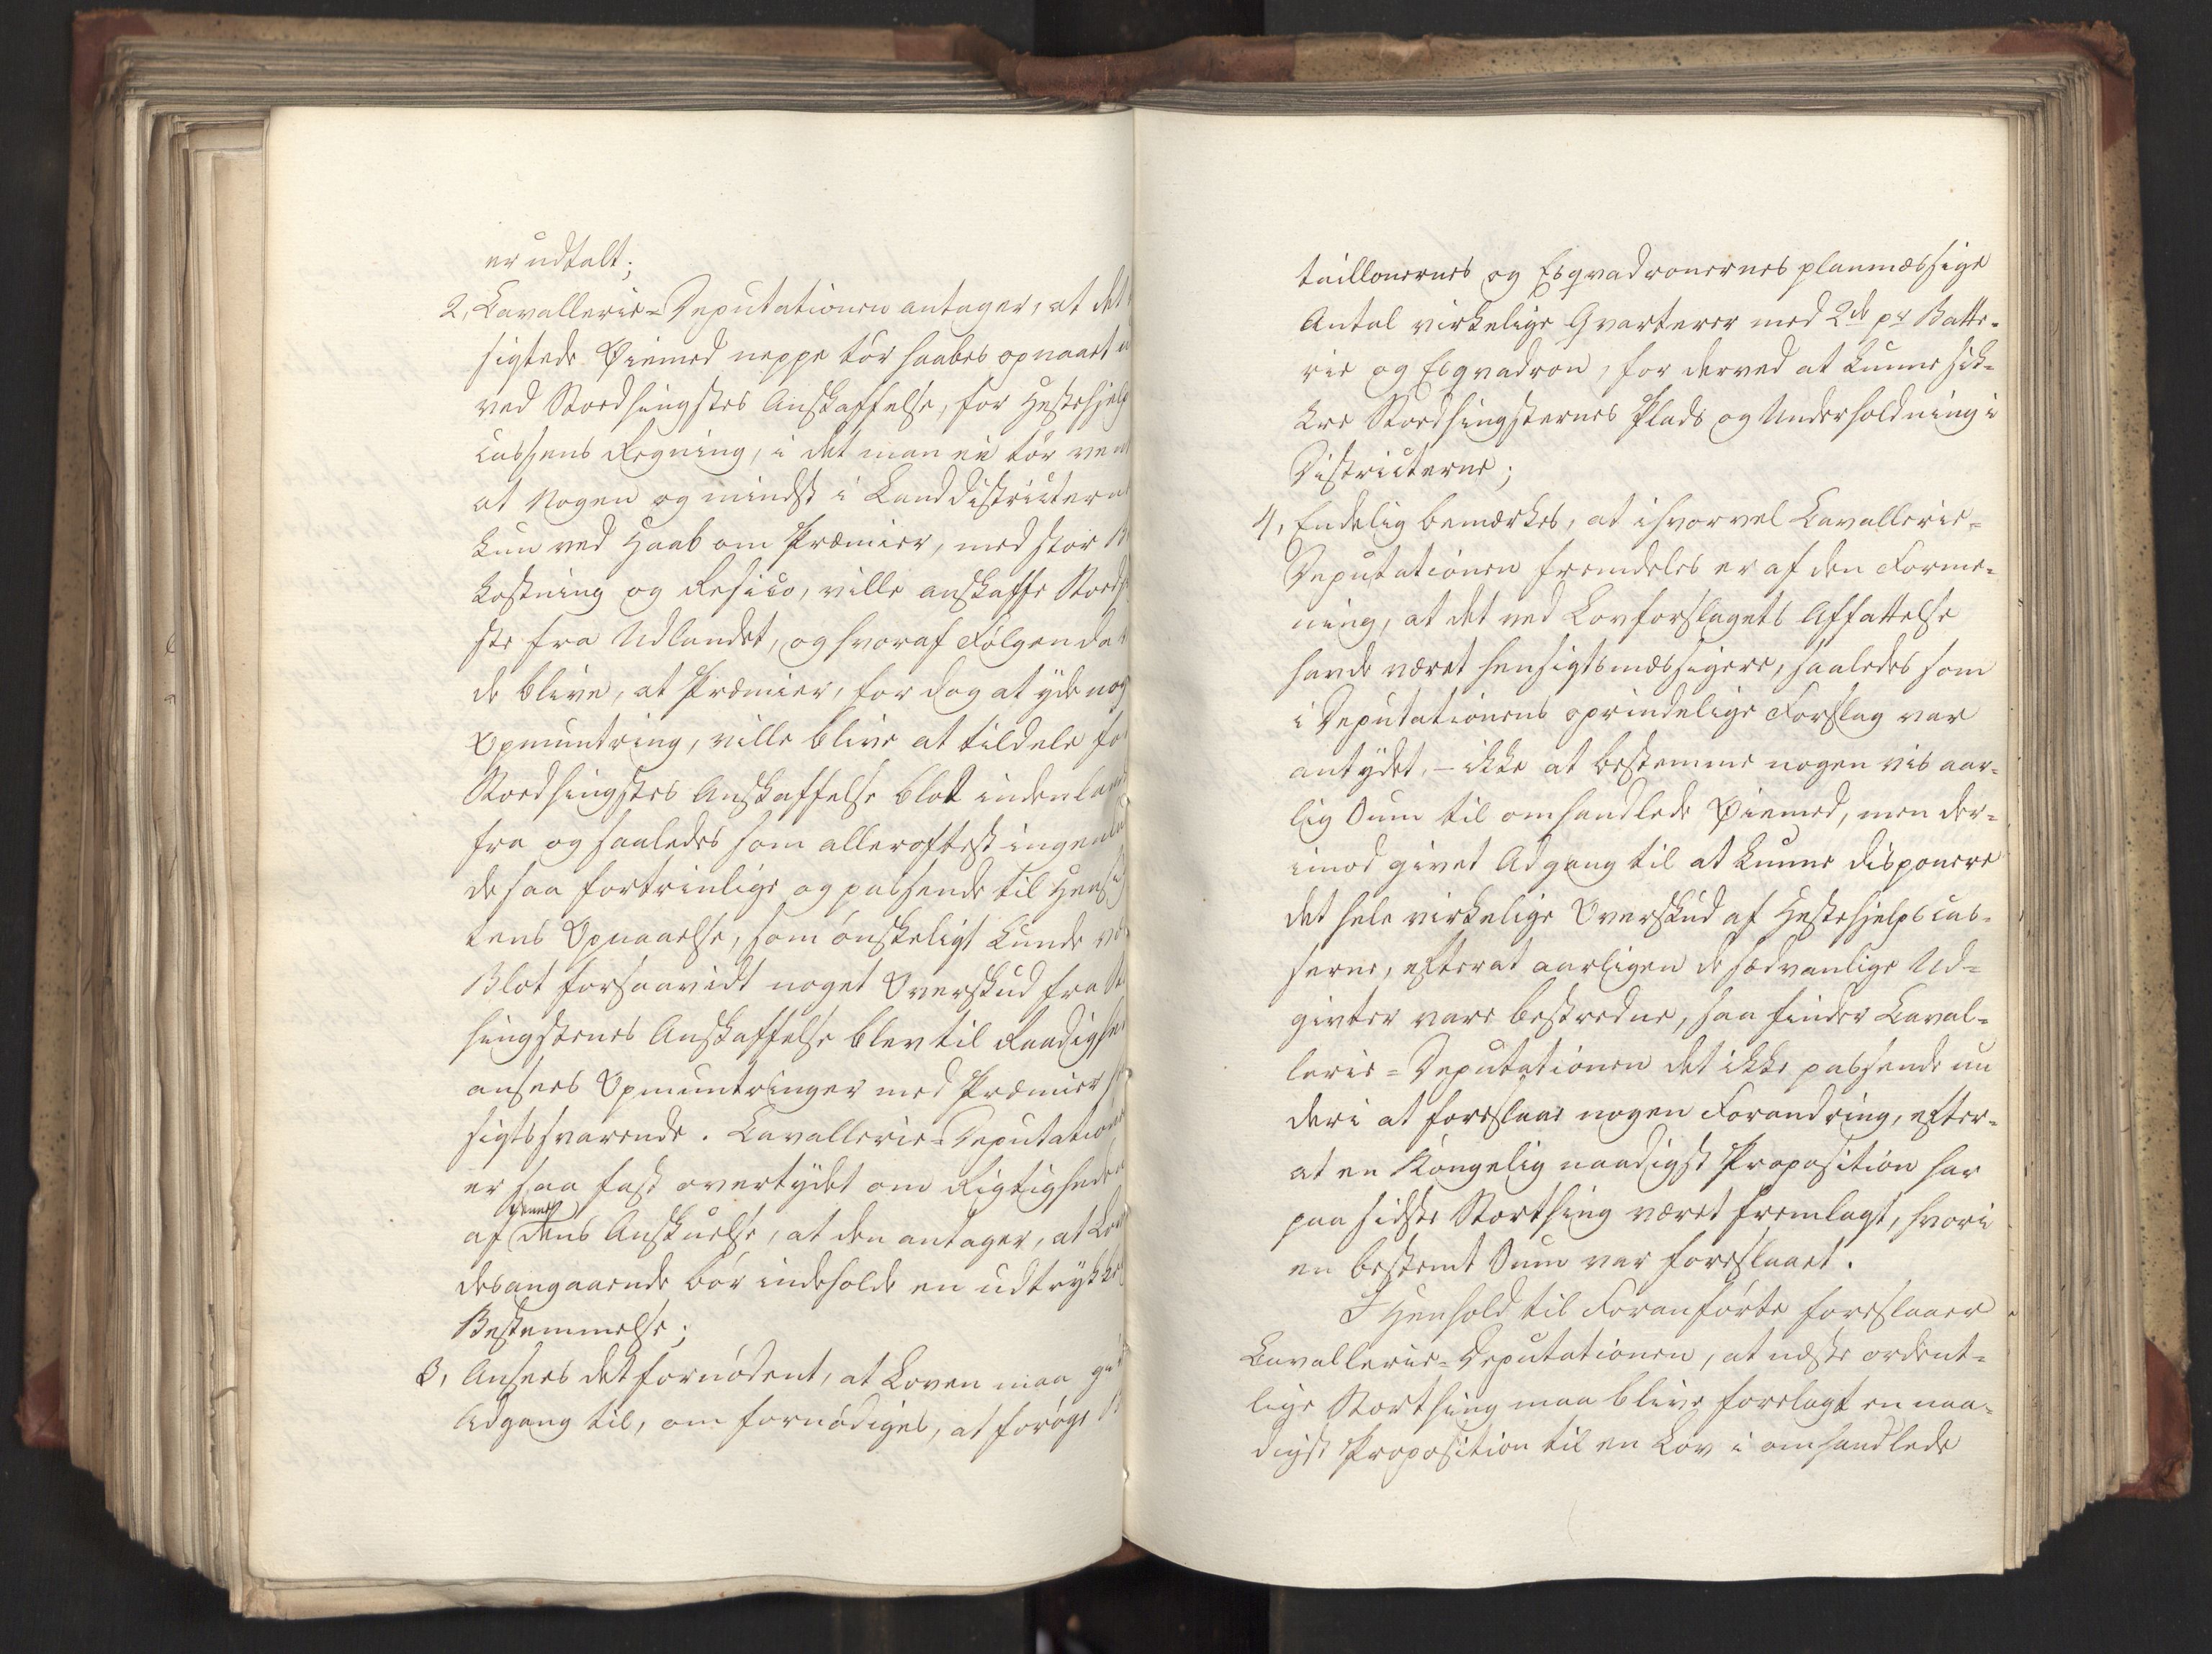 er udtalt;
2, Cavallerie-Deputationen antager, at det
sigtede Øiemed neppe tør haabes opnaaet
ved Stodhingstes Anskaffelse, for Hestehjelp
cassens Regning, i det man ei tør ven
at Nogen og mindst i Landdistricterne
kun ved Haab om Præmier, med stor B
kostning og Resico, ville anskaffe Stodh
ste fra Udlandet, og hvoraf Følgen da
de blive, at Præmier, for dog at yde nog
Opmuntring, ville blive at tildele for
Stodhingstes Anskaffelse blot indenlands
fra og saaledes som alleroftest ingenlu
de saa fortrinlige og passende til Hensig
tens Opnaaelse, som ønskeligt kunde væ
Blot forsaavidt noget Overskud fra St
hingstenes Anskaffelse blev til Raadighed
ansees Opmuntringer med Præmier
sigtssvarende. Cavallerie-Deputationen
er saa fast overtydet om Rigtigheden
denne
af dens Anskuelse, at den antager, at Lov
desangaaende bør indeholde en udtrykke
Bestemmelse;
3, Ansees det fornødent, at Loven maa g
Adgang til, om fornødiges, at forøge B
taillonernes og Esqvadronernes planmæssige
Antal virkelige Qvarterer med 2de pr Batte-
rie og Esqvadron, for derved at kunne sik-
kre Stodhingsternes Plads og Underholdning i
Districterne;
4, Endelig bemærkes, at ihvorvel Cavallerie-
Deputationen fremdeles er af den Forme-
ning, at det ved Lovforslagets Affattelse
havde været hensigtsmæssigere, saaledes som
i Deputationens oprindelige Forslag var
antydet, – ikke at bestemme nogen vis aar-
lig Sum til omhandlede Øiemed, men der-
imod givet Adgang til at kunne disponere
det hele virkelige Overskud af Hestehjelpscas-
serne, efterat aarligen de sædvanlige Ud-
givter vare bestredne, saa finder Caval-
lerie-Deputationen det ikke passende nu
deri at foreslaae nogen Forandring, efter-
at en Kongelig naadigst Proposition har
paa sidste Storthing været fremlagt, hvori
en bestemt Sum var foreslaaet.
I Henhold til Foranførte foreslaaer
Cavallerie-Deputationen, at næste ordent-
lige Storthing maa blive forelagt en naa-
digst Proposition til en Lov i omhandlede